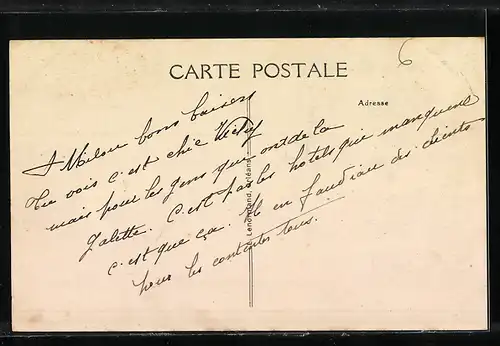 6
CARTE POSTALE
Adresse
A Milou bons baisers
Tu vois c'est chic Vichy
mais pour les gens qui ont de la
galette. C'est pas les hotels qui manquent
c'est que ça. Il en faudrait des clients
pour les contenter tous.
Lenormand, Orléans